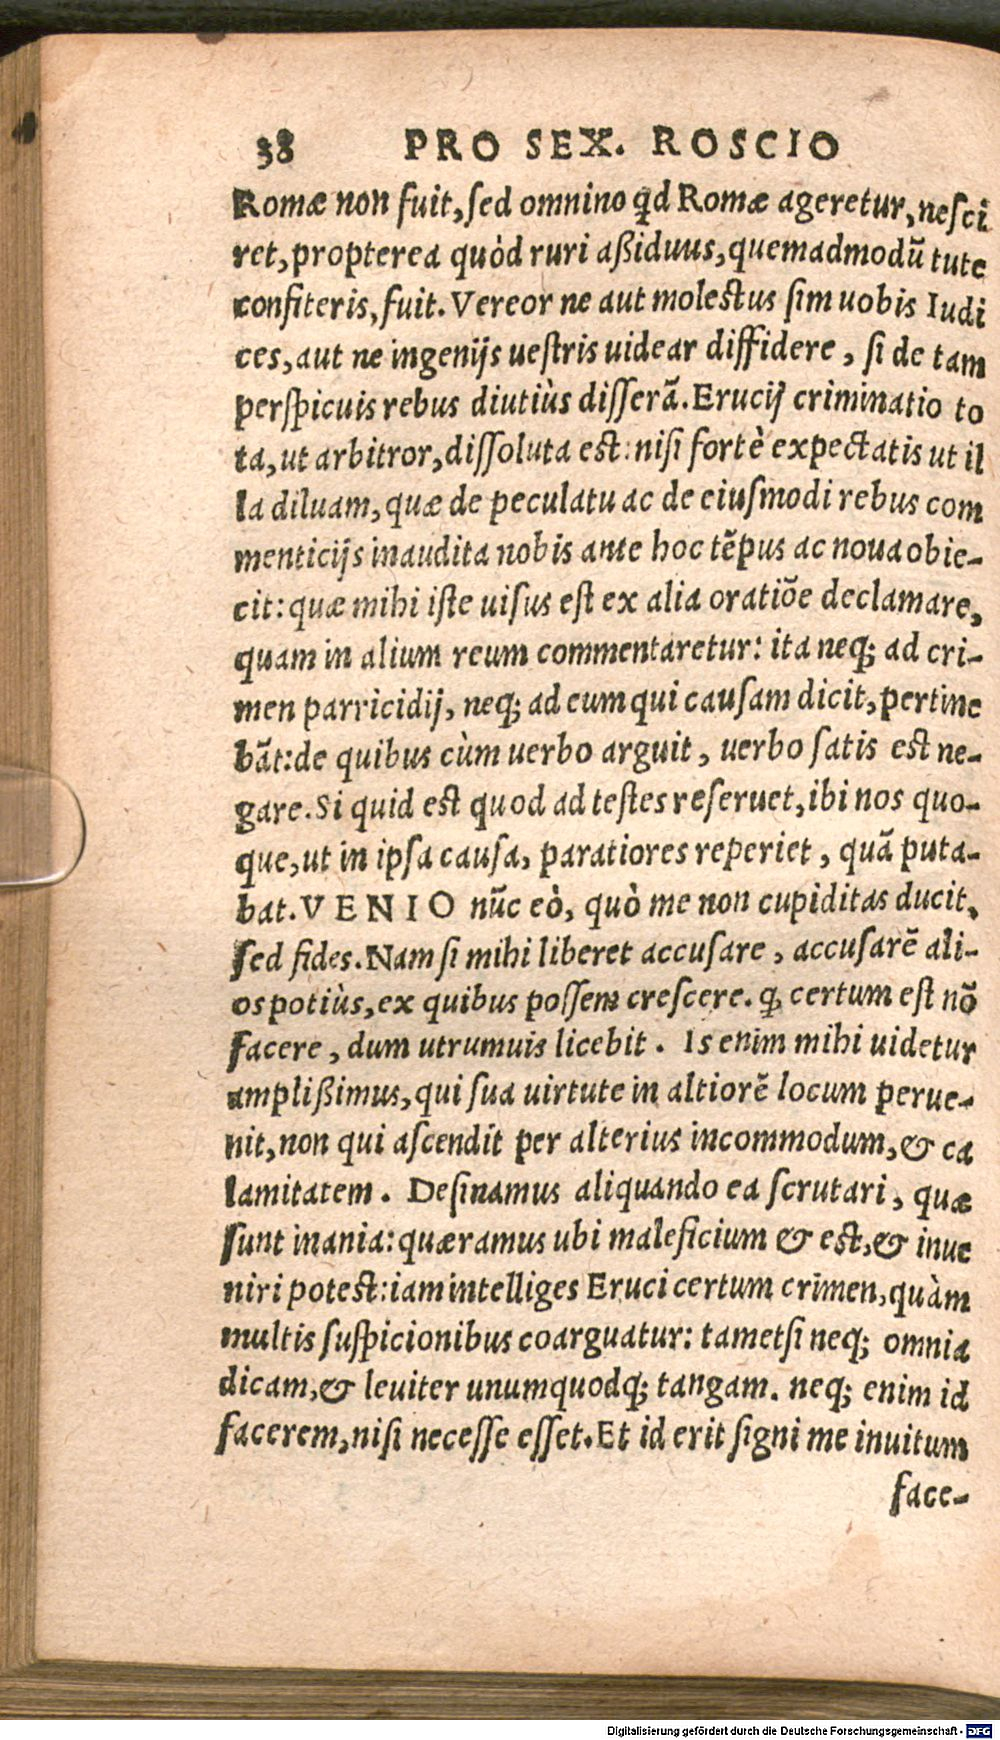 38 PRO SEX. ROSCIO
Romæ non fuit, sed omnino qd Romæ ageretur, nesci
ret, propterea quòd ruri aßiduus, quemadmodũ tute
confiteris, fuit. Vereor ne aut molestus sim uobis Iudi
ces, aut ne ingenijs uestris uidear diffidere, si de tam
perspicuis rebus diutiùs disserã. Erucij criminatio to
ta, ut arbitror, dissoluta est: nisi fortè expectatis ut il
la diluam, quæ de peculatu ac de eiusmodi rebus com
menticijs inaudita nobis ante hoc tẽpus ac noua obie-
cit: quæ mihi iste uisus est ex alia oratiõe declamare,
quam in alium reum commentaretur: ita neq; ad cri-
men parricidij, neq; ad eum qui causam dicit, pertine
bãt: de quibus cùm uerbo arguit, uerbo satis est ne-
gare. Si quid est quod ad testes reseruet, ibi nos quo-
que, ut in ipsa causa, paratiores reperiet, quã puta-
bat. VENIO nũc eò, quò me non cupiditas ducit,
sed fides. Nam si mihi liberet accusare, accusarẽ ali-
os potiùs, ex quibus possem crescere. q certum est nõ
facere, dum utrumuis licebit. Is enim mihi uidetur
amplißimus, qui sua uirtute in altiorẽ locum perue-
nit, non qui ascendit per alterius incommodum, & ca
lamitatem. Desinamus aliquando ea scrutari, quæ
sunt inania: quæramus ubi maleficium & est, & inue
niri potest: iam intelliges Eruci certum crimen, quàm
multis suspicionibus coarguatur: tametsi neq; omnia
dicam, & leuiter unumquodq; tangam. neq; enim id
facerem, nisi necesse esset. Et id erit signi me inuitum
face-
Digitalisierung gefördert durch die Deutsche Forschungsgemeinschaft - DFG